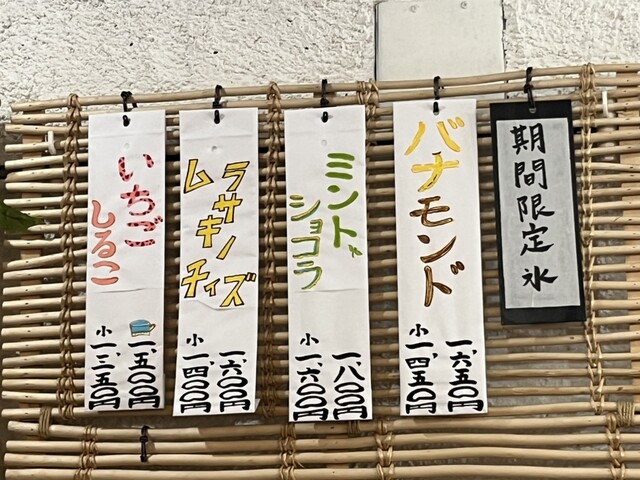 期間限定氷
バナモンド
一、六五〇円
小一、四五〇円
ミント
ショコラ
一、八〇〇円
小一、六〇〇円
ムラサキノチィズ
一、六〇〇円
小一、四〇〇円
いちご
しるこ
一、五〇〇円
小一、三五〇円